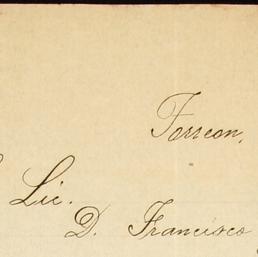 Torreon,
Lic.
D. Francisco